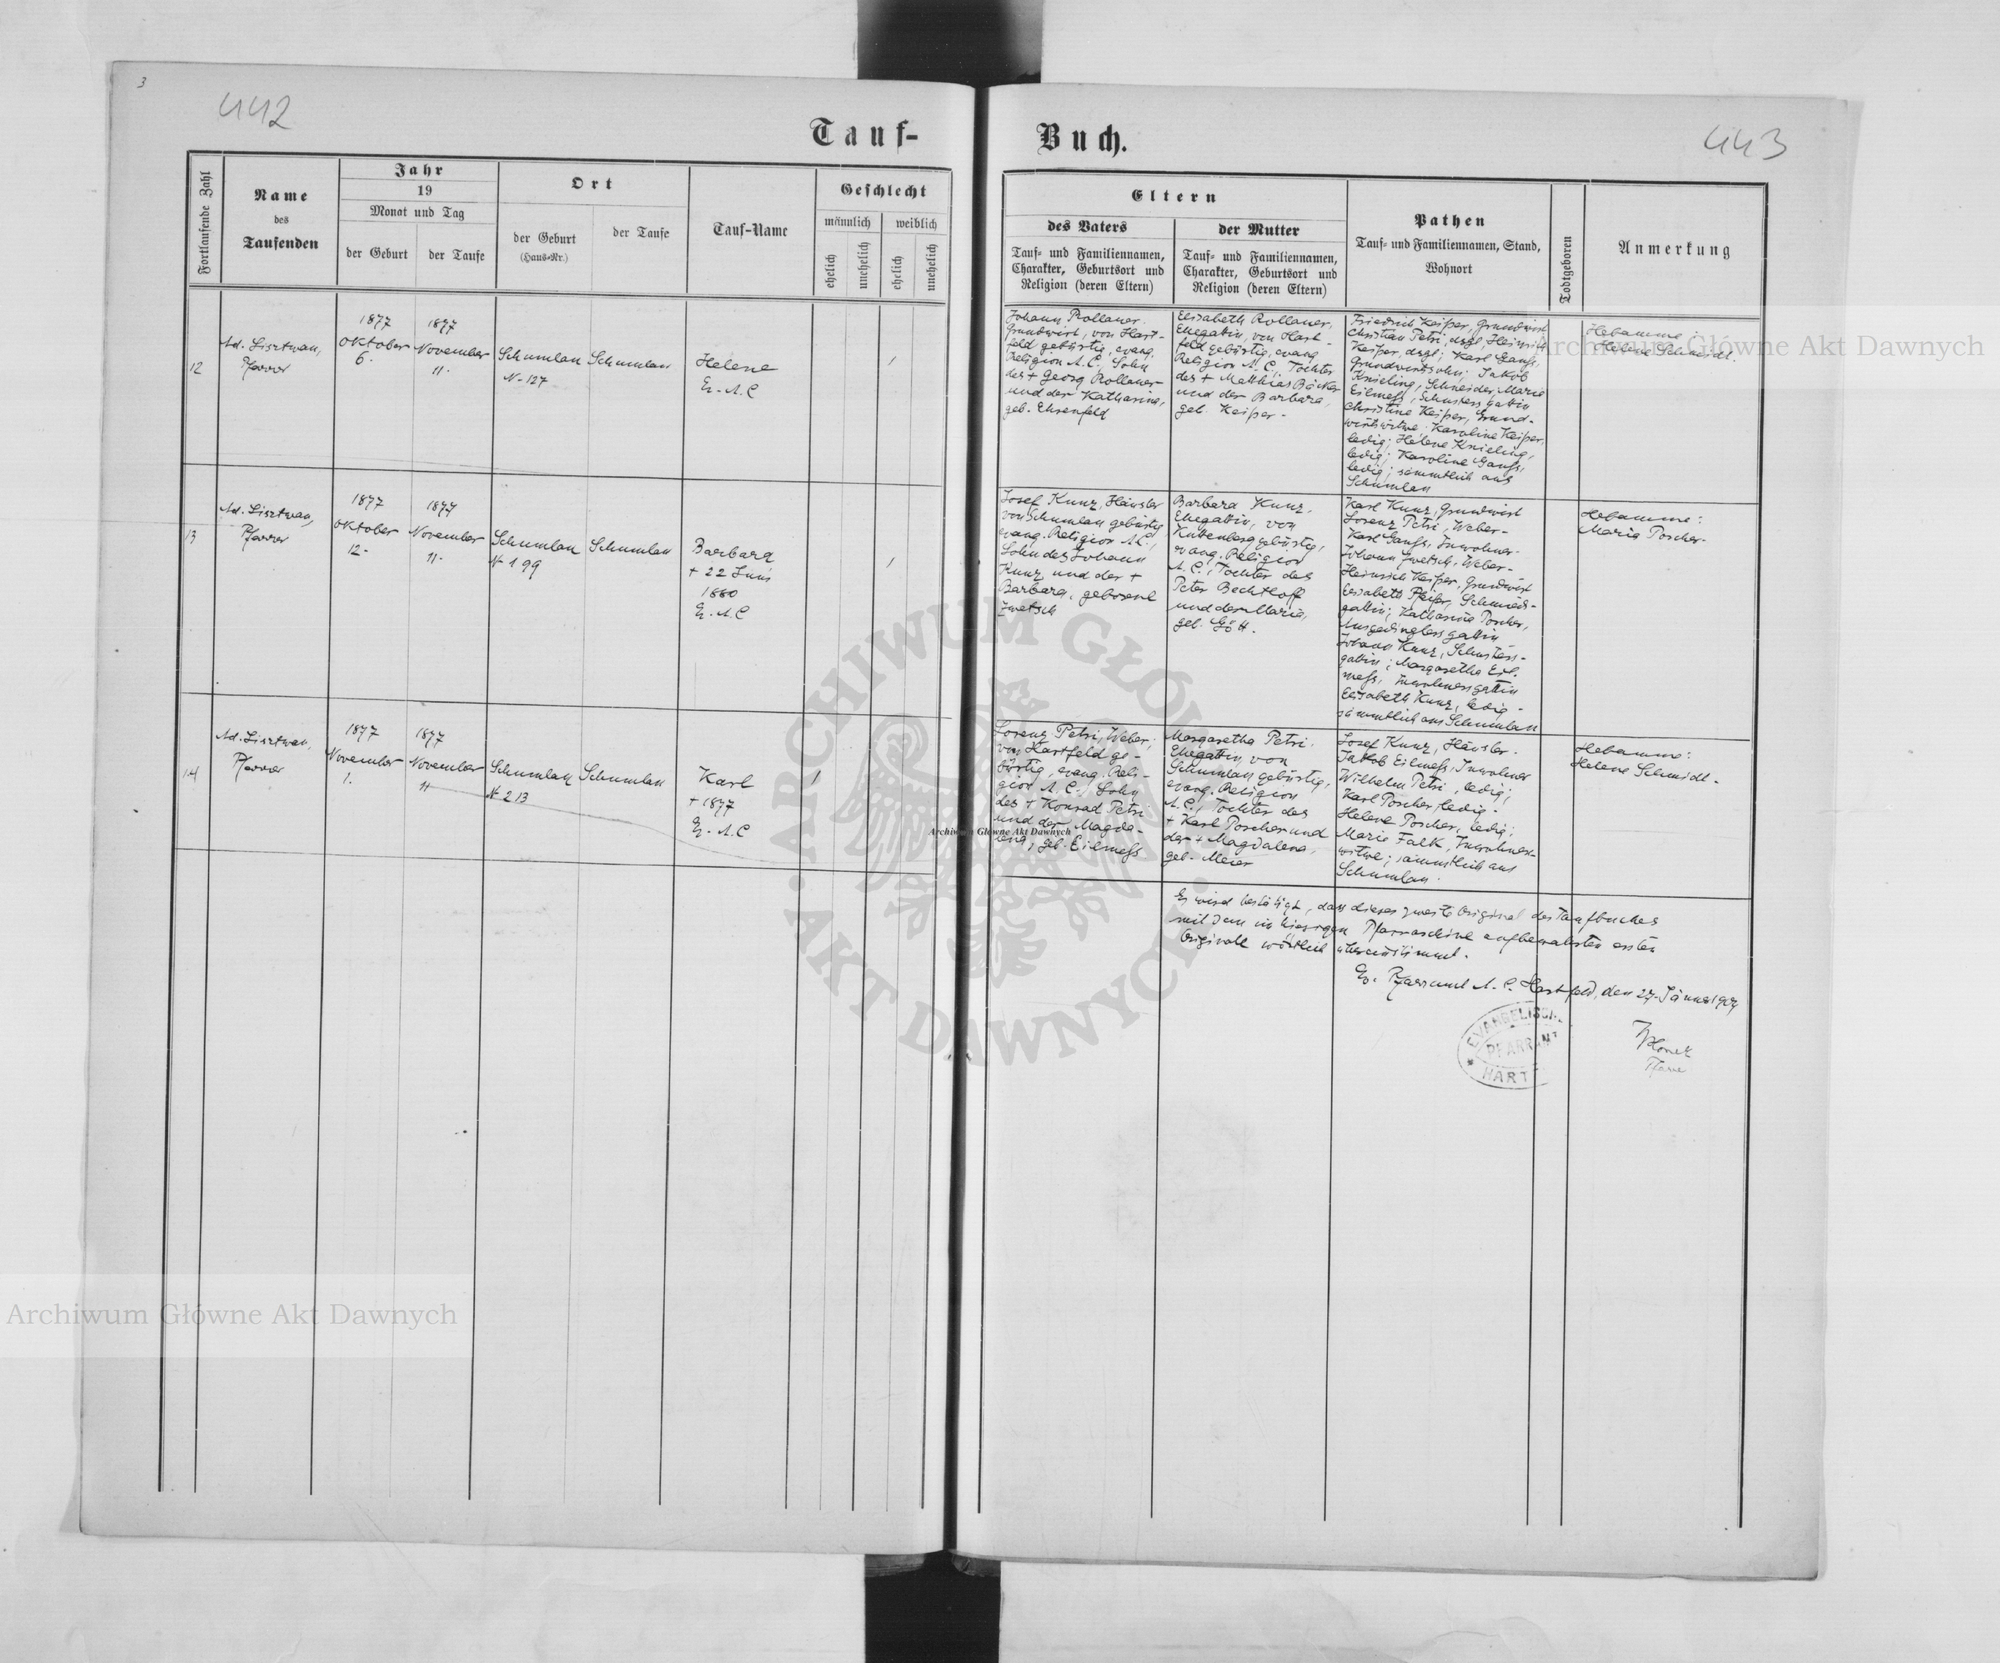 3
442
443
Tauf-
Buch.
Fortlaufende Zahl
Name
des
Taufenden
Jahr
19
Monat und Tag
der Geburt
der Taufe
Ort
der Geburt
(Haus-Nr.)
der Taufe
Tauf-Name
Geschlecht
männlich
weiblich
ehelich
unehelich
ehelich
unehelich
Eltern
des Vaters
Tauf- und Familiennamen,
Charakter, Geburtsort und
Religion (deren Eltern)
der Mutter
Tauf- und Familiennamen,
Charakter, Geburtsort und
Religion (deren Eltern)
Pathen
Tauf- und Familiennamen, Stand,
Wohnort
Todtgeboren
Anmerkung
12
Ad. Lisztwan,
Pfarrer
1877
Oktober
6.
1877
November
11.
Schumlau
N. 127
Schumlau
Helene
Ev. A. C
1
Johann Rollauer.
Grundwirt, von Hart-
feld gebürtig, evang.
Religion A. C., Sohn
des + Georg Rollauer
und der Katharina,
geb. Ehrenfeld
Elisabeth Rollauer,
Ehegattin, von Hart-
feld gebürtig, evang.
Religion A. C., Tochter
des + Matthias Böcker
und der Barbara,
geb. Keiper.
Friedrich Keiper, Grundwirt
Christian Petri, dsgl, Heinrich
Keiper, dsgl; Karl Gauß,
Grundwirtsohn; Jakob
Knieling, Schneider, Marie
Eilmeß, Schusters gattin
Christine Keiper, Grund-
wirtswitwe. Karoline Keiper,
ledig; Helene Knieling,
ledig; Karoline Gauß,
ledig; sämmtlich aus
Schumlau
Hebamme:
Helene Schmidt.
13
Ad. Lisztwan,
Pfarrer
1877
Oktober
12.
1877
November
11.
Schumlau
N 199
Schumlau
Barbara
+ 22 Juni
1880
Ev. A. C
1
Josef Kunz, Häusler
von Schumlau gebürtig
evang. Religion A. C.,
Sohn des Johann
Kunz und der +
Barbara, geborene
Zwetsch
Barbara Kunz,
Ehegattin, von
Kuttenberg gebürtig,
evang. Religion
A. C., Tochter des
Peter Bechtloff
und der Maria,
geb. Gött.
Karl Kunz, Grundwirt
Lorenz Petri, Weber.
Karl Gauß, Inwohner.
Johann Zwetsch, Weber.
Heinrich Keiper, Grundwirt
Elisabeth Pfeifer, Schmieds-
gattin; Katharina Poscher,
Ausgedinglers gattin
Johann Kunz, Schusters-
gattin; Margaretha Eil-
meß, Inwohnersgattin
Elisabeth Kunz, ledig.
sämmtlich aus Schumlau
Hebamme:
Maria Poscher.
14
Ad. Lisztwan,
Pfarrer
1877
November
1.
1877
November
11
Schumlau
N 213
Schumlau
Karl
+ 1877
Ev. A. C
1
Lorenz Petri, Weber,
von Hartfeld ge-
bürtig, evang. Reli-
gion A. C., Sohn
des + Konrad Petri
und der Magda-
lena, geb. Eilmeß
Margaretha Petri.
Ehegattin, von
Schumlau gebürtig,
evang. Religion
A. C., Tochter des
+ Karl Poscher und
der + Magdalena,
geb. Meier
Josef Kunz, Häusler.
Jakob Eilmeß, Inwohner
Wilhelm Petri, ledig;
Karl Poscher, ledig.
Helene Poscher, ledig;
Marie Falk, Inwohners-
witwe; sämmtlich aus
Schumlau.
Hebamme:
Helene Schmidt.
Es wird bestätigt, dass dieses zweite Original des Taufbuches
mit dem im hiesigen Pfarrarchive aufbewahrten ersten
Originale wörtlich übereinstimmt.
Ev. Pfarramt A. C. Hartfeld, den 27. Jänner 1904
EVANGELISCH
PFARRAMT
HART
Pfarrer
ARCHIWUM GŁÓWNE
AKT DAWNYCH
Archiwum Główne Akt Dawnych
Archiwum Główne Akt Dawnych
Archiwum Główne Akt Dawnych